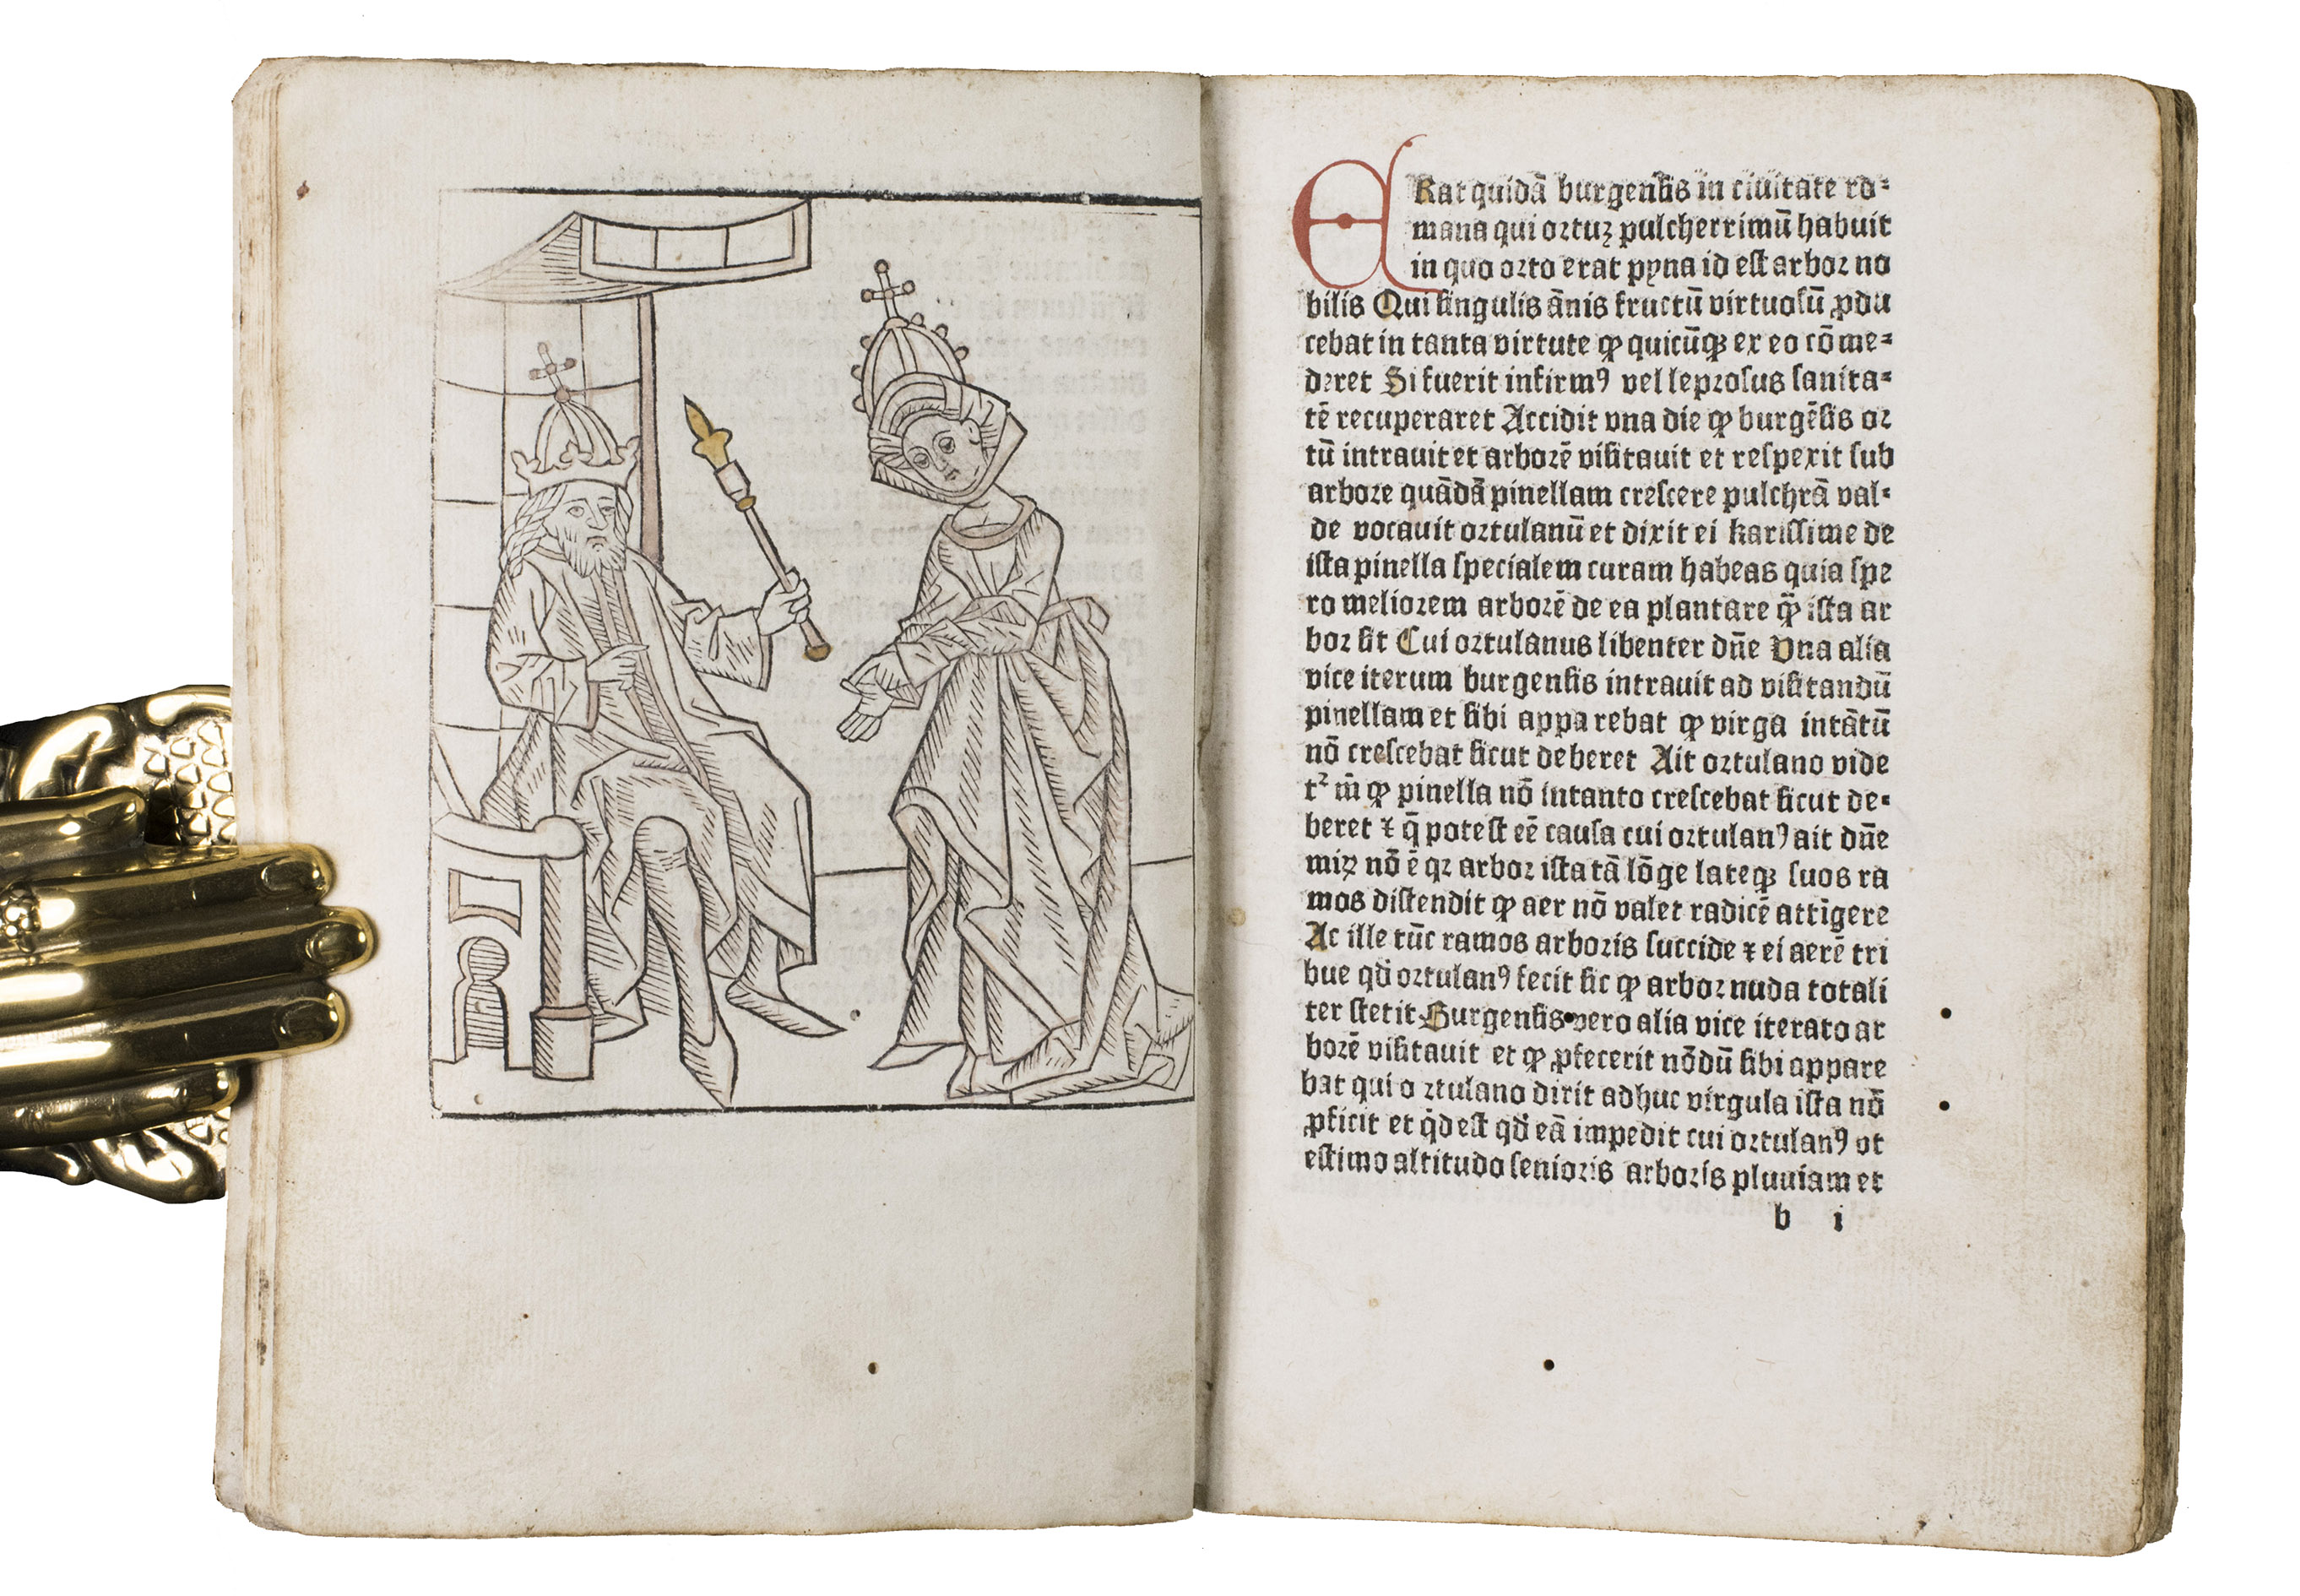 ERat quidā burgenſis in ciuitate ro⸗
mana qui ortuꝫ pulcherrimū habuit
in quo orto erat pyna id eſt arbor no
bilis Qui ſingulis ānis fructū virtuoſū ꝓdu
cebat in tanta virtute ꝙ quicūqꝫ ex eo cōme⸗
deret Si fuerit infirmꝰ vel leproſus ſanita⸗
tē recuperaret Accidit vna die ꝙ burgēſis or
tū intrauit et arborē viſitauit et reſpexit ſub
arbore quādā pinellam creſcere pulchrā val⸗
de vocauit ortulanū et dixit ei kariſſime de
iſta pinella ſpecialem curam habeas quia ſpe
ro meliorem arborē de ea plantare ꝙ̄ iſta ar
bor ſit Cui ortulanus libenter dn̄e Vna alia
vice iterum burgenſis intrauit ad viſitandū
pinellam et ſibi apparebat ꝙ virga intātū
nō creſcebat ſicut deberet Ait ortulano vide
tᷣ m̄ ꝙ pinella nō intanto creſcebat ſicut de⸗
beret ⁊ q̄ poteſt eē cauſa cui ortulanꝰ ait dn̄e
miꝝ nō ē qꝛ arbor iſta tā lōge lateqꝫ ſuos ra
mos diſtendit ꝙ aer nō valet radicē attīgere
Ac ille tūc ramos arboris ſuccide ⁊ ei aerē tri
bue qd̄ ortulanꝰ fecit ſic ꝙ arbor nuda totali
ter ſtetit Burgenſis vero alia vice iterato ar
borē viſitauit et ꝙ ꝓfecerit nōdū ſibi appare
bat qui ortulano dixit adhuc virgula iſta nō
ꝓficit et qd̓ eſt qd̄ eā impedit cui ortulanꝰ vt
eſtimo altitudo ſenioris arboris pluuiam et
b i